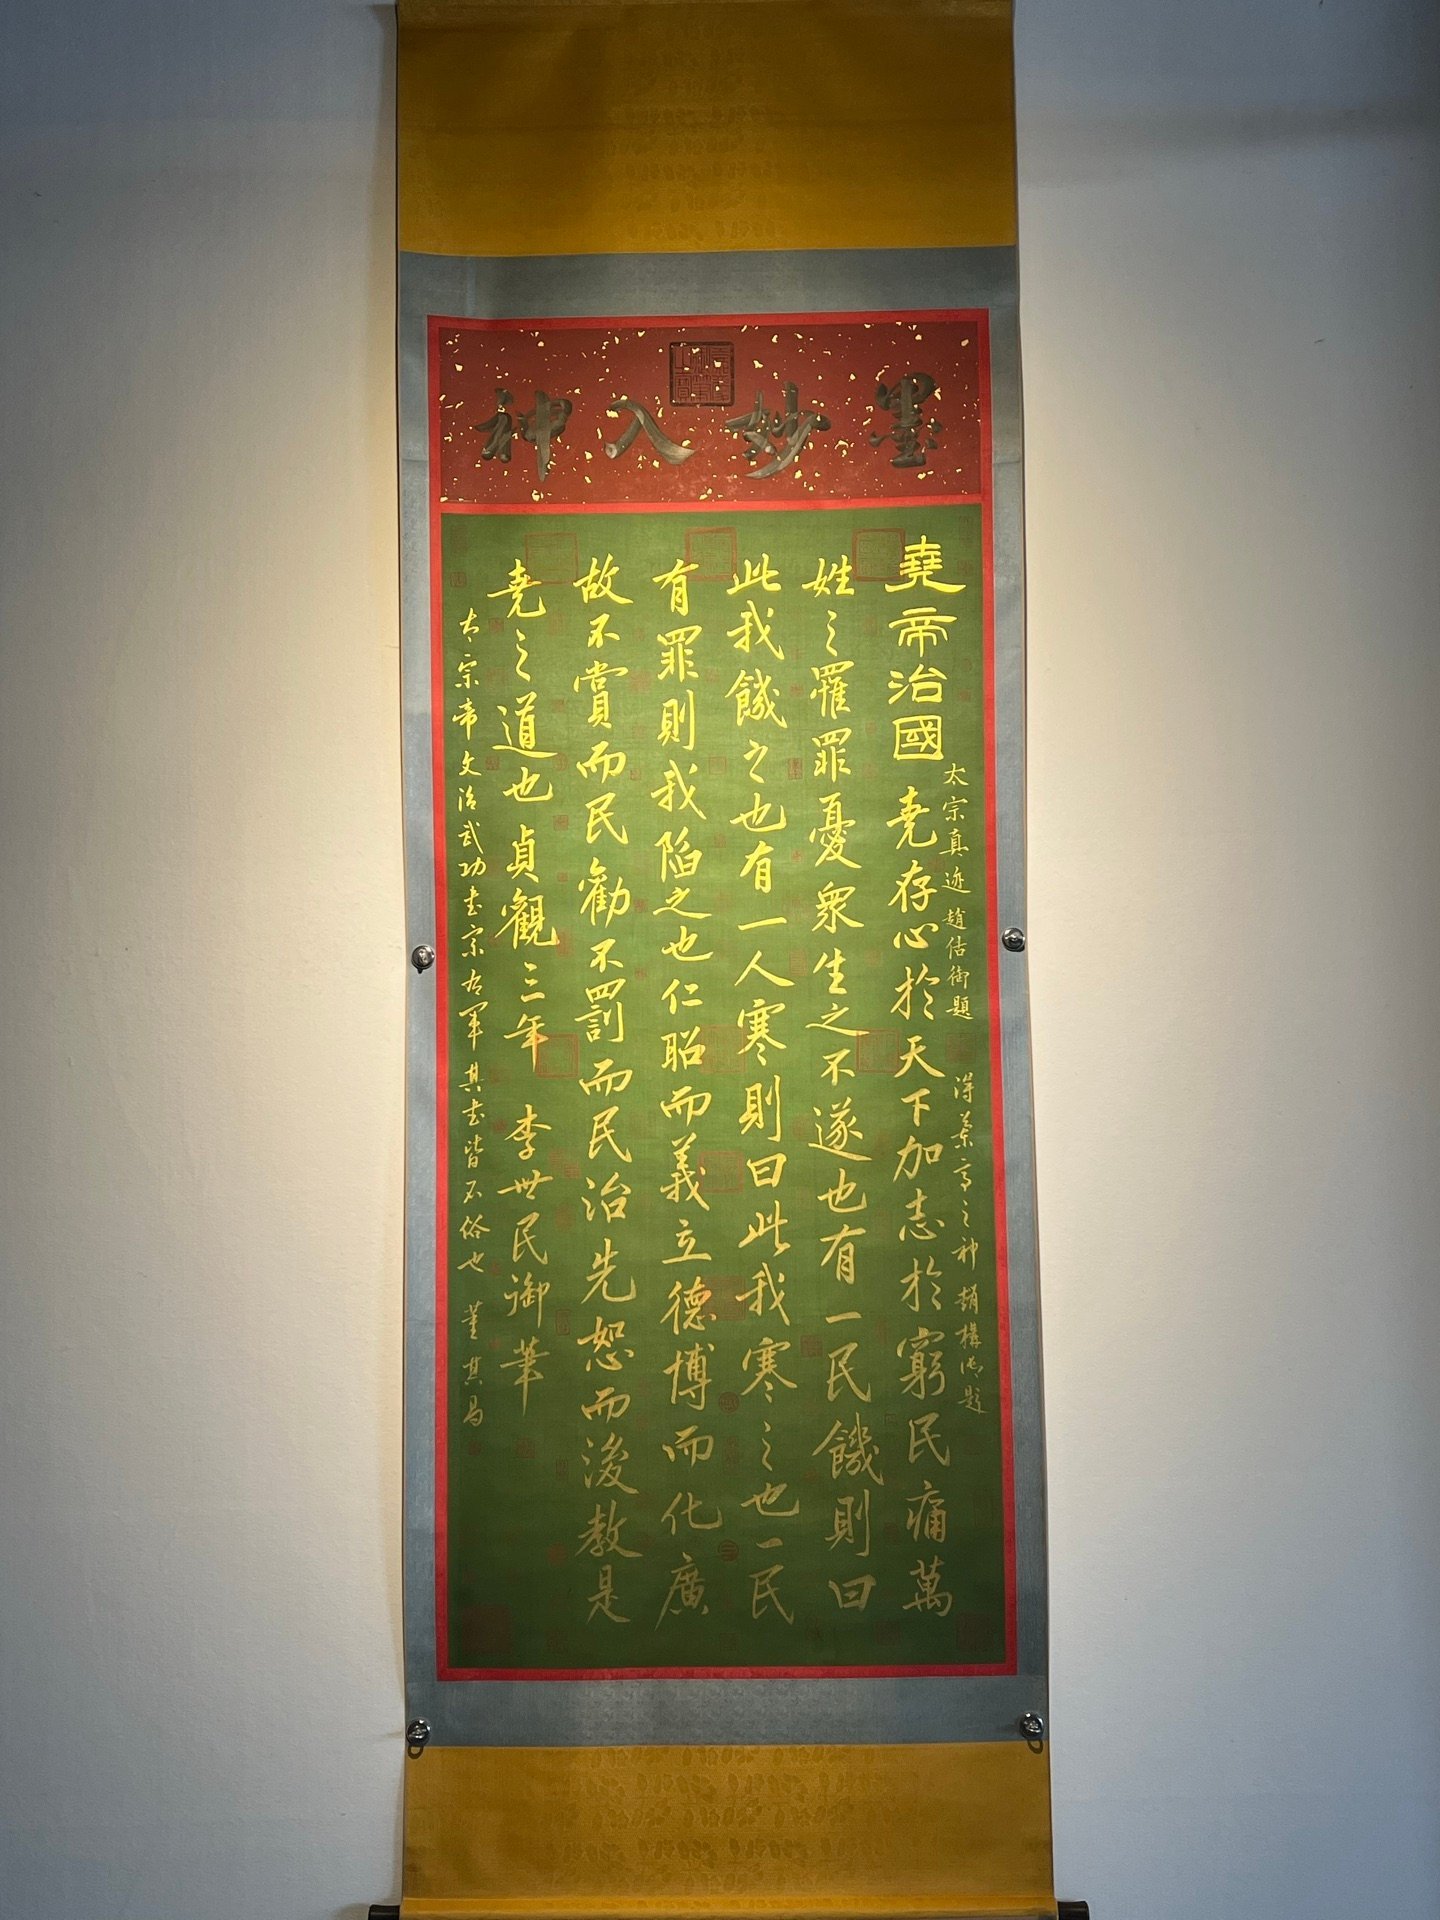 墨妙入神
太宗真迹 趙佶御題
得蘭亭之神 趙構御題
堯帝治國 堯存心於天下加志於窮民痛萬
姓之罹罪憂衆生之不遂也有一民饑則曰
此我饑之也有一人寒則曰此我寒之也一民
有罪則我陷之也仁昭而義立德博而化廣
故不賞而民勸不罰而民治先恕而後教是
堯之道也貞觀三年 李世民御筆
太宗帝文治武功書宗右軍其書皆不俗也 董其昌